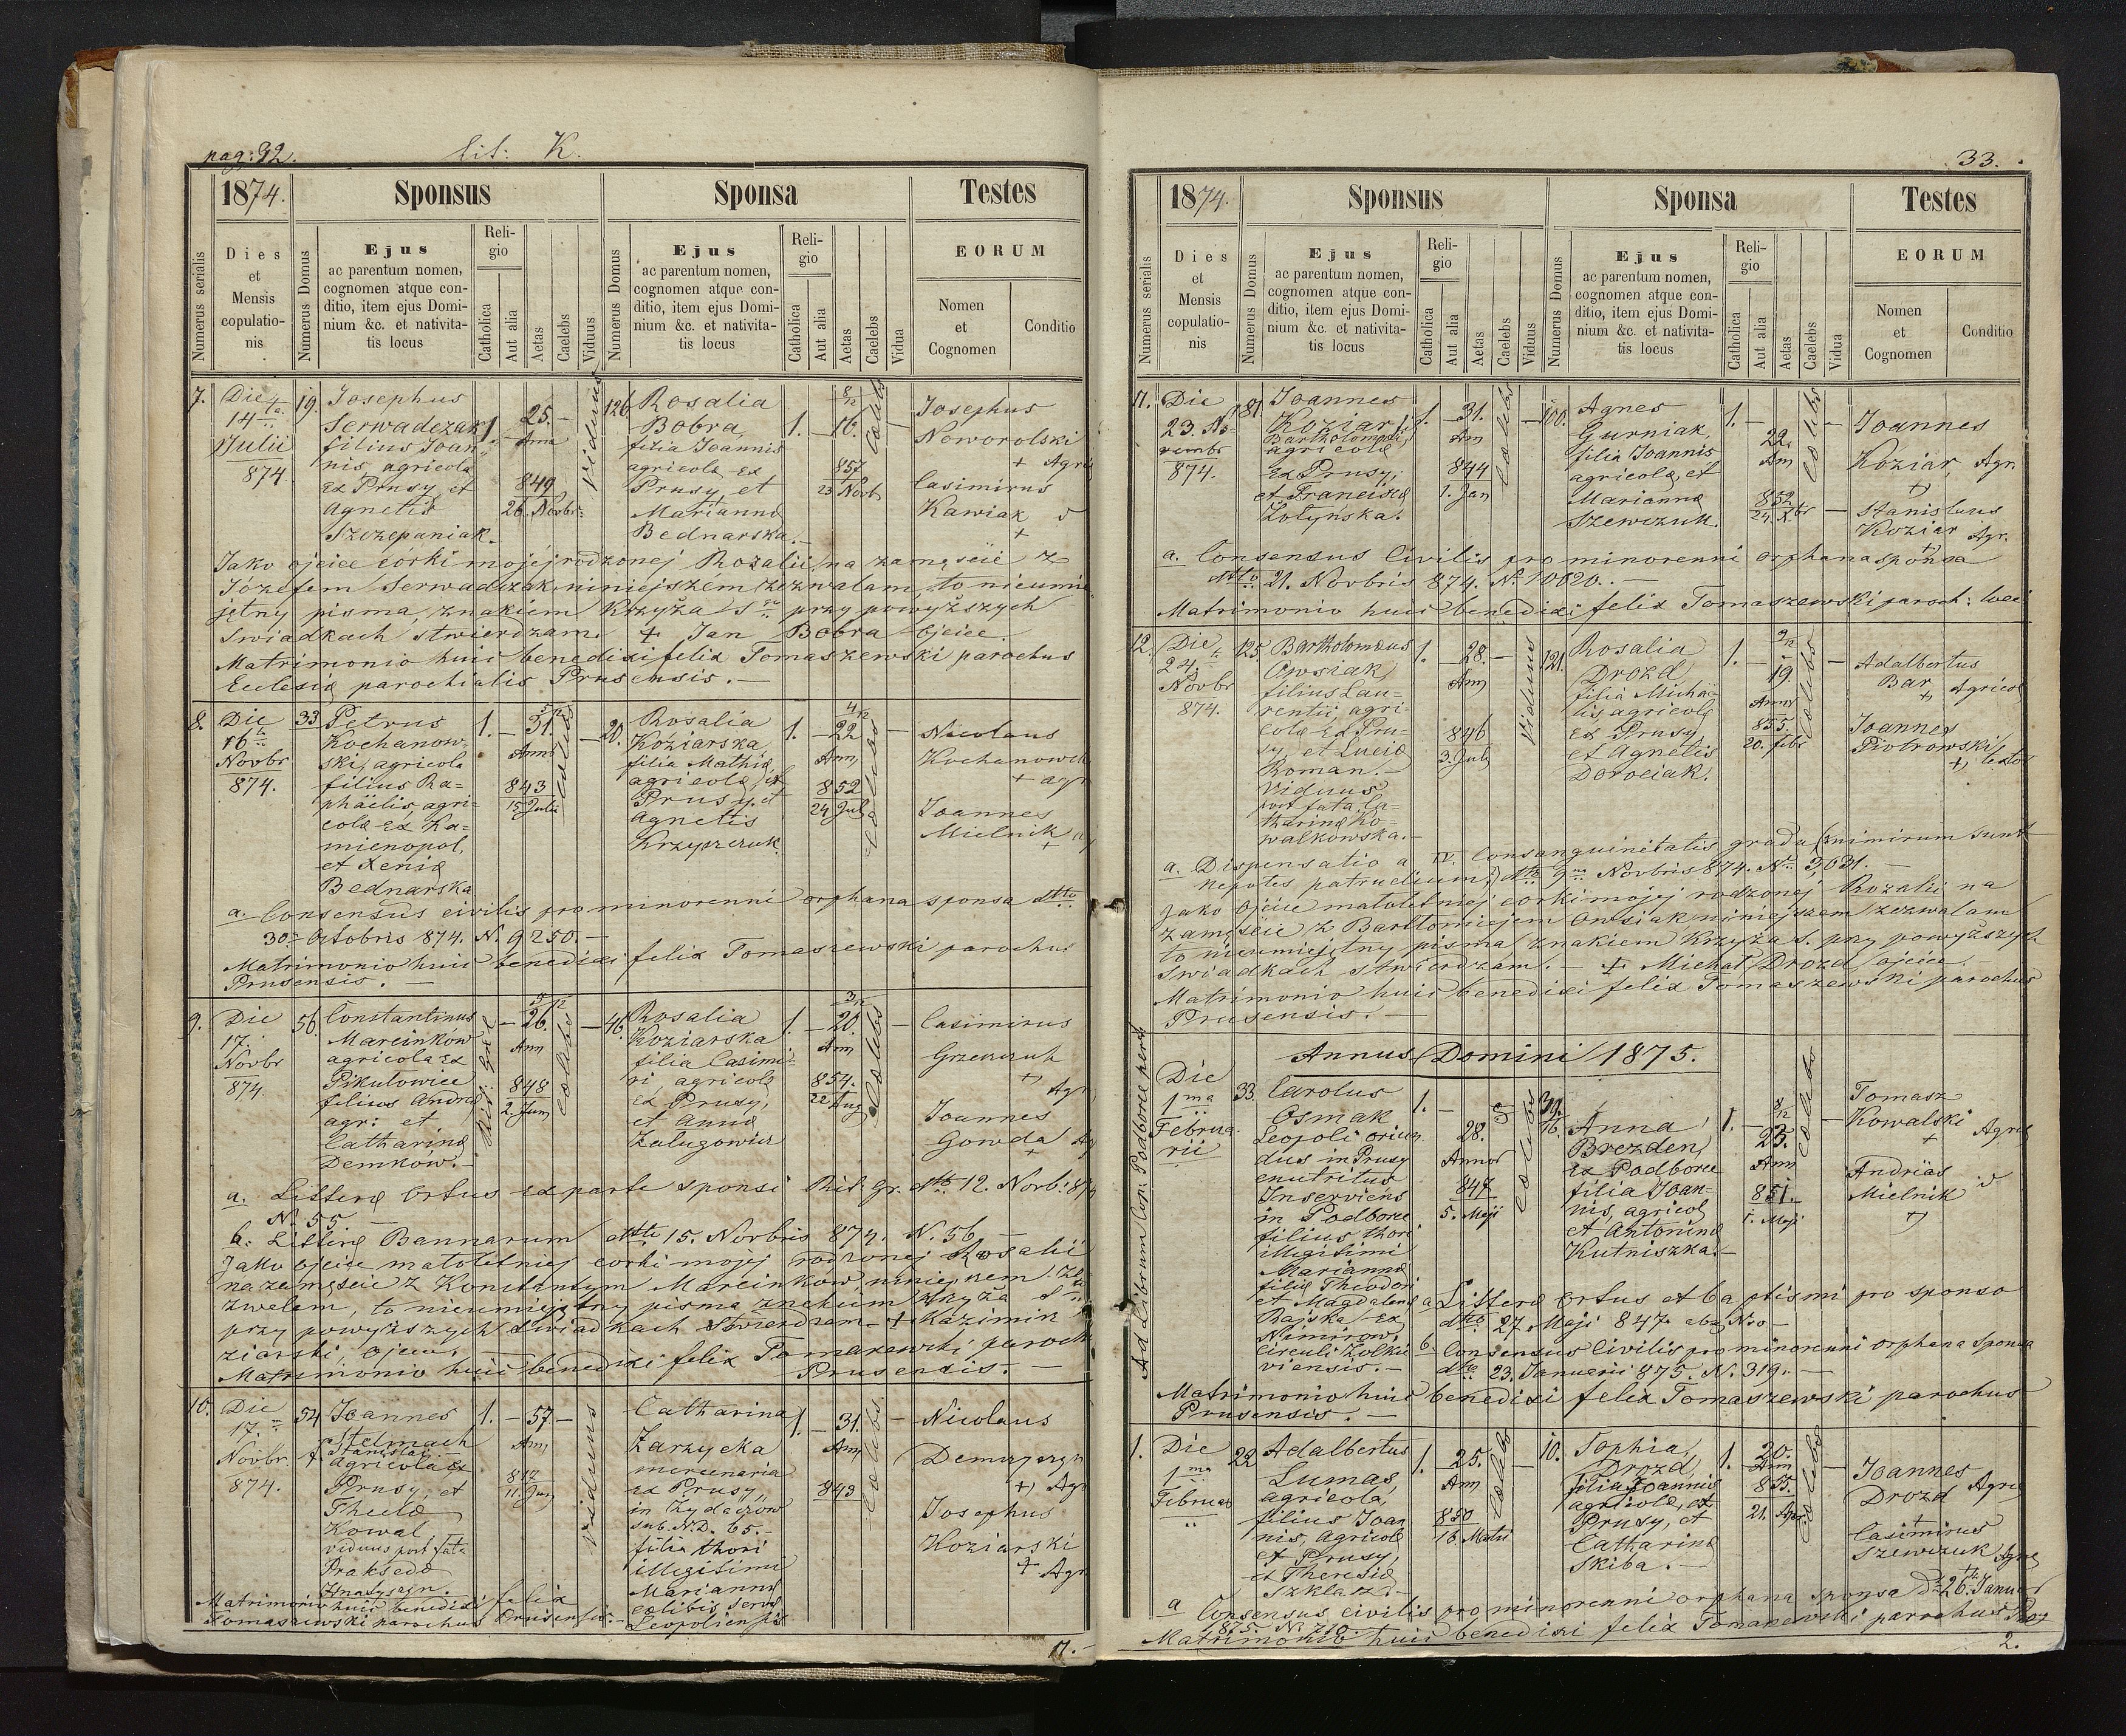 pag: 32.
lit: K.
1874.
Sponsus
Sponsa
Testes
Numerus serialis
Dies
et
Mensis
copulatio-
nis
Numerus Domus
Ejus
ac parentum nomen,
cognomen atque con-
ditio, item ejus Domi-
nium &c. et nativita-
tis locus
Reli-
gio
Catholica
Aut alia
Aetas
Caelebs
Viduus
Numerus Domus
Ejus
ac parentum nomen,
cognomen atque con-
ditio, item ejus Domi-
nium &c. et nativita-
tis locus
Reli-
gio
Catholica
Aut alia
Aetas
Caelebs
Vidua
EORUM
Nomen
et
Cognomen
Conditio
7.
Die
14ta
Julii
874.
19.
Josephus
Serwadczak
filius Joan-
nis, agricola
ex Prusy, et
Agnetis
Szczepaniak.
1.
25.
Ann
849
26. Novbr:
Viduus
126
Rosalia
Bobra,
filia Joannis
agricolæ ex
Prusy, et
Mariannæ
Bednarska.
1.
8/12
16.
857
23 Novb
Cœlebs
Josephus
Noworolski
+ Agri
Casimirus
Kawiak
+
Jako ojciec córki mojej rodzonej Rozalii, na zamęscie z
Józefem Serwadczak niniejszém zezwalam, to nieumie-
jętny pisma, znakiem Krzyża S. przy powyższych
Swiadkach stwierdzam. + Jan Bobra ojciec.
Matrimonio huic benedixi felix Tomaszewski parochus
Ecclesiæ parochialis Prusensis.
8.
Die
16ta
Novbr
874.
33
Petrus
Kochanow-
ski, agricola
filius Ra-
phäelis, agri-
colæ ex Ka-
mienopol,
et Xeniæ
Bednarska
1.
5/12
31.
Anno
843
15 Julii
Cœlebs
20.
Rosalia
Koziarska,
filia Mathiæ
agricolæ, ex
Prusy, et
Agnetis
Krzyszczuk.
1.
4/12
22
Ann
852
24 Jul
Cœlebs
Nicolaus
Kochanowsk
+ agr
Joannes
Mielnik
+
a. Consensus civilis pro minorenni orphana sponsa dtto
30 Octobris 874. N. 9250.
Matrimonio huic benedixi felix Tomaszewski parochus
Prusensis.
9.
Die
17.
Novbr
874
56
Constantinus
Marcinków
agricola ex
Pikułowice
filius Andreæ
agr: et
Catharinæ
Demków.
Rit: Græ
5/12
26.
Ann
848
2. Jun
Cœlebs
46.
Rosalia
Koziarska
filia Casimi-
ri, agricolæ
ex Prusy,
et Annæ
Załugowicz
1.
3/12
20.
Ann
854.
22 Aug
Cœlebs
Casimirus
Grzewczuk
+
Agr.
Joannes
Gowda
+
a. Litteræ Ortus ex parte sponsi Rit. gr. dtto 12. Novb: 874
N. 55
b. Litteræ Bannarum dtto 15. Novbris 874. N. 56
Jako ojciec małoletniej corki mojej rodzonej Rosalii
na zamęscie z Konstantym Marcinkow niniejszem ze-
zwalam, to nieumiejętny pisma znakiem krzyża S
przy powyższych Swiadkach stwierdzam. + Kazimir
ziarski ojciec.
Matrimonio huic benedixi felix Tomaszewski paroch
Prusensis.
10.
Die
17.
Novbr
874.
54
Joannes
Stelmach
f Stanislai
agricola ex
Prusy, et
Theclæ
Kowal
viduus post fata
Praksedæ
1.
57
Ann
817
11. Jun
Viduus
Catharina
Zarzycka
mercenaria
ex Prusy,
in Zydaczów
sub. N.D. 65.
filia thori
illegitimi
Mariannæ
cœlibis servæ
Leopoliensis
1.
31.
Ann
843
Cœlebs
Nicolaus
+ Agr
Josephus
Koziarski
+ Agr
Matrimonio huic benedixi felix
Tomaszewski parochus Prusensis.
11.
33.
1874.
Sponsus
Sponsa
Testes
Numerus serialis
Dies
et
Mensis
copulatio-
nis
Numerus Domus
Ejus
ac parentum nomen,
cognomen atque con-
ditio, item ejus Domi-
nium &c. et nativita-
tis locus
Reli-
gio
Catholica
Aut alia
Aetas
Caelebs
Viduus
Numerus Domus
Ejus
ac parentum nomen,
cognomen atque con-
ditio, item ejus Domi-
nium &c. et nativita-
tis locus
Reli-
gio
Catholica
Aut alia
Aetas
Caelebs
Vidua
EORUM
Nomen
et
Cognomen
Conditio
11.
Die
23. No-
vembr
874.
81.
Joannes
Koziar f
Bartholomæi,
agricola
ex Prusy,
et Franciscæ
Żołyńska.
1.
31.
Ann
844
1. Jan
Cœlebs
100.
Agnes
Gurniak,
filia Joannis
agricolæ, et
Mariannæ
Szewczuk.
1.
22.
Ann
852
24. Xbr
Cœlebs
Joannes
Koziar, Agr
+
Stanislaus
Koziar Agr.
+
a. Consensus Civilis pro minorenni orphana sponsa
dtto 21. Novbris 874. N. 10020.
Matrimonio huic benedixi felix Tomaszewski paroch: loci
12.
Die
24.
Novbr
874.
125.
Bartholomæus
Owsiak,
filius Lau-
rentii, agri-
colæ ex Pru-
sy, et Luciæ
Roman.
Viduus
post fata Ca-
tharinæ Ko-
walkowska.
1.
28.
Ann
846
3. July
Viduus
121.
Rosalia
Drozd,
filia Michaë-
lis, agricolæ
ex Prusy,
et Agnetis
Dorociak.
1.
9/12
19.
Anno
855.
20. febr
Cœlebs
Adalbertus
Bar, Agricol
+
Joannes
Piotrowski
+
a. Dispensatio a IV. Consanguinitatis gradu (nimirum sunt
nepotes patruelium) dtto 9na Novbris 874. N. 3,631.
Jako ojciec małoletniej corki mojej rodzonej Rozalii na
zamęscie z Bartłomiejem Owsiak, niniejszem zezwalam
to nieumiejętny pisma znakiem Krzyża S. przy powyższych
Swiadkach stwierdzam. + Michał Drozd ojciec.
Matrimonio huic benedixi felix Tomaszewski parochus
Prusensis.
Annus Domini 1875.
Ad Librum Cop: Podborce pert
Die
1ma
Februa-
rii
33
Carolus
Osmak
Leopoli oriun-
dus in Prusy
enutritus
Inserviens
in Podborce
filius thori
illegitimi
Mariannæ
filiæ Theodori
et Magdalenæ
Rajska ex
Niemirow
Circuli Zołkie-
viensis.
1.
28.
Annor
847.
5. Maji
Cœlebs
39.
16.
Anna
Brezden,
ex Podborce
filia Joan-
nis, agricol
et Antoninæ
Kutniszka.
1.
8/12
23.
Ann
851.
1. Maji
Cœlebs
Tomasz
Kowalski
+
Agric
Andreas
Mielnik
+
a. Litteræ Ortus et baptismi pro sponso
dtto 27. Maji 847. absq Nro
b. Consensus Civilis pro minorenni orphana Sponsa
dtto 23. Januarii 875. N. 319.
Matrimonio huic benedixi felix Tomaszewski parochus
Prusensis.
1.
Die
1ma
Februar
22
Adalbertus
Lumas,
agricola,
filius Joan-
nis, agricolæ
ex Prusy,
et Theresiæ
Szklarz.
1.
25.
Ann
850
16. Martii
Cœlebs
10.
Sophia
Drozd,
filia Joannis
agricolæ, ex
Prusy, et
Catharinæ
Skiba.
1.
20.
Ann
855.
21. Apr
Cœlebs
Joannes
Drozd Agric
+
Casimirus
Szewczuk Agric
+
a Consensus civilis pro minorenni orphana sponsa dtto 26. Januar
1875. N. 210.
Matrimonio huic benedixi felix Tomaszewski parochus
2.